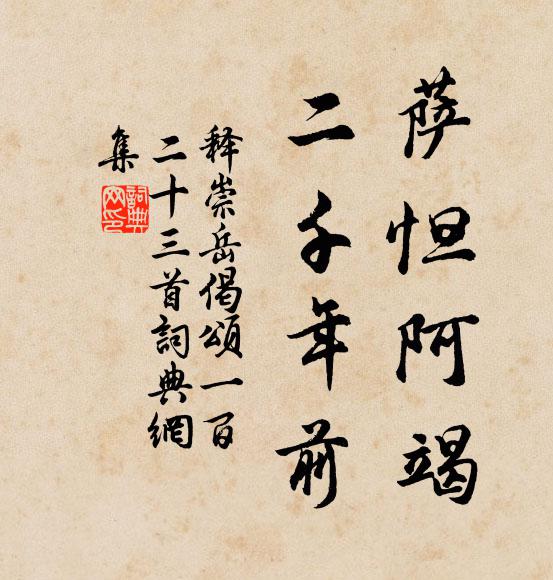 萨怛阿竭
二千年前
释崇岳偈頌一百
二十三首詞典網
集
詞典網印